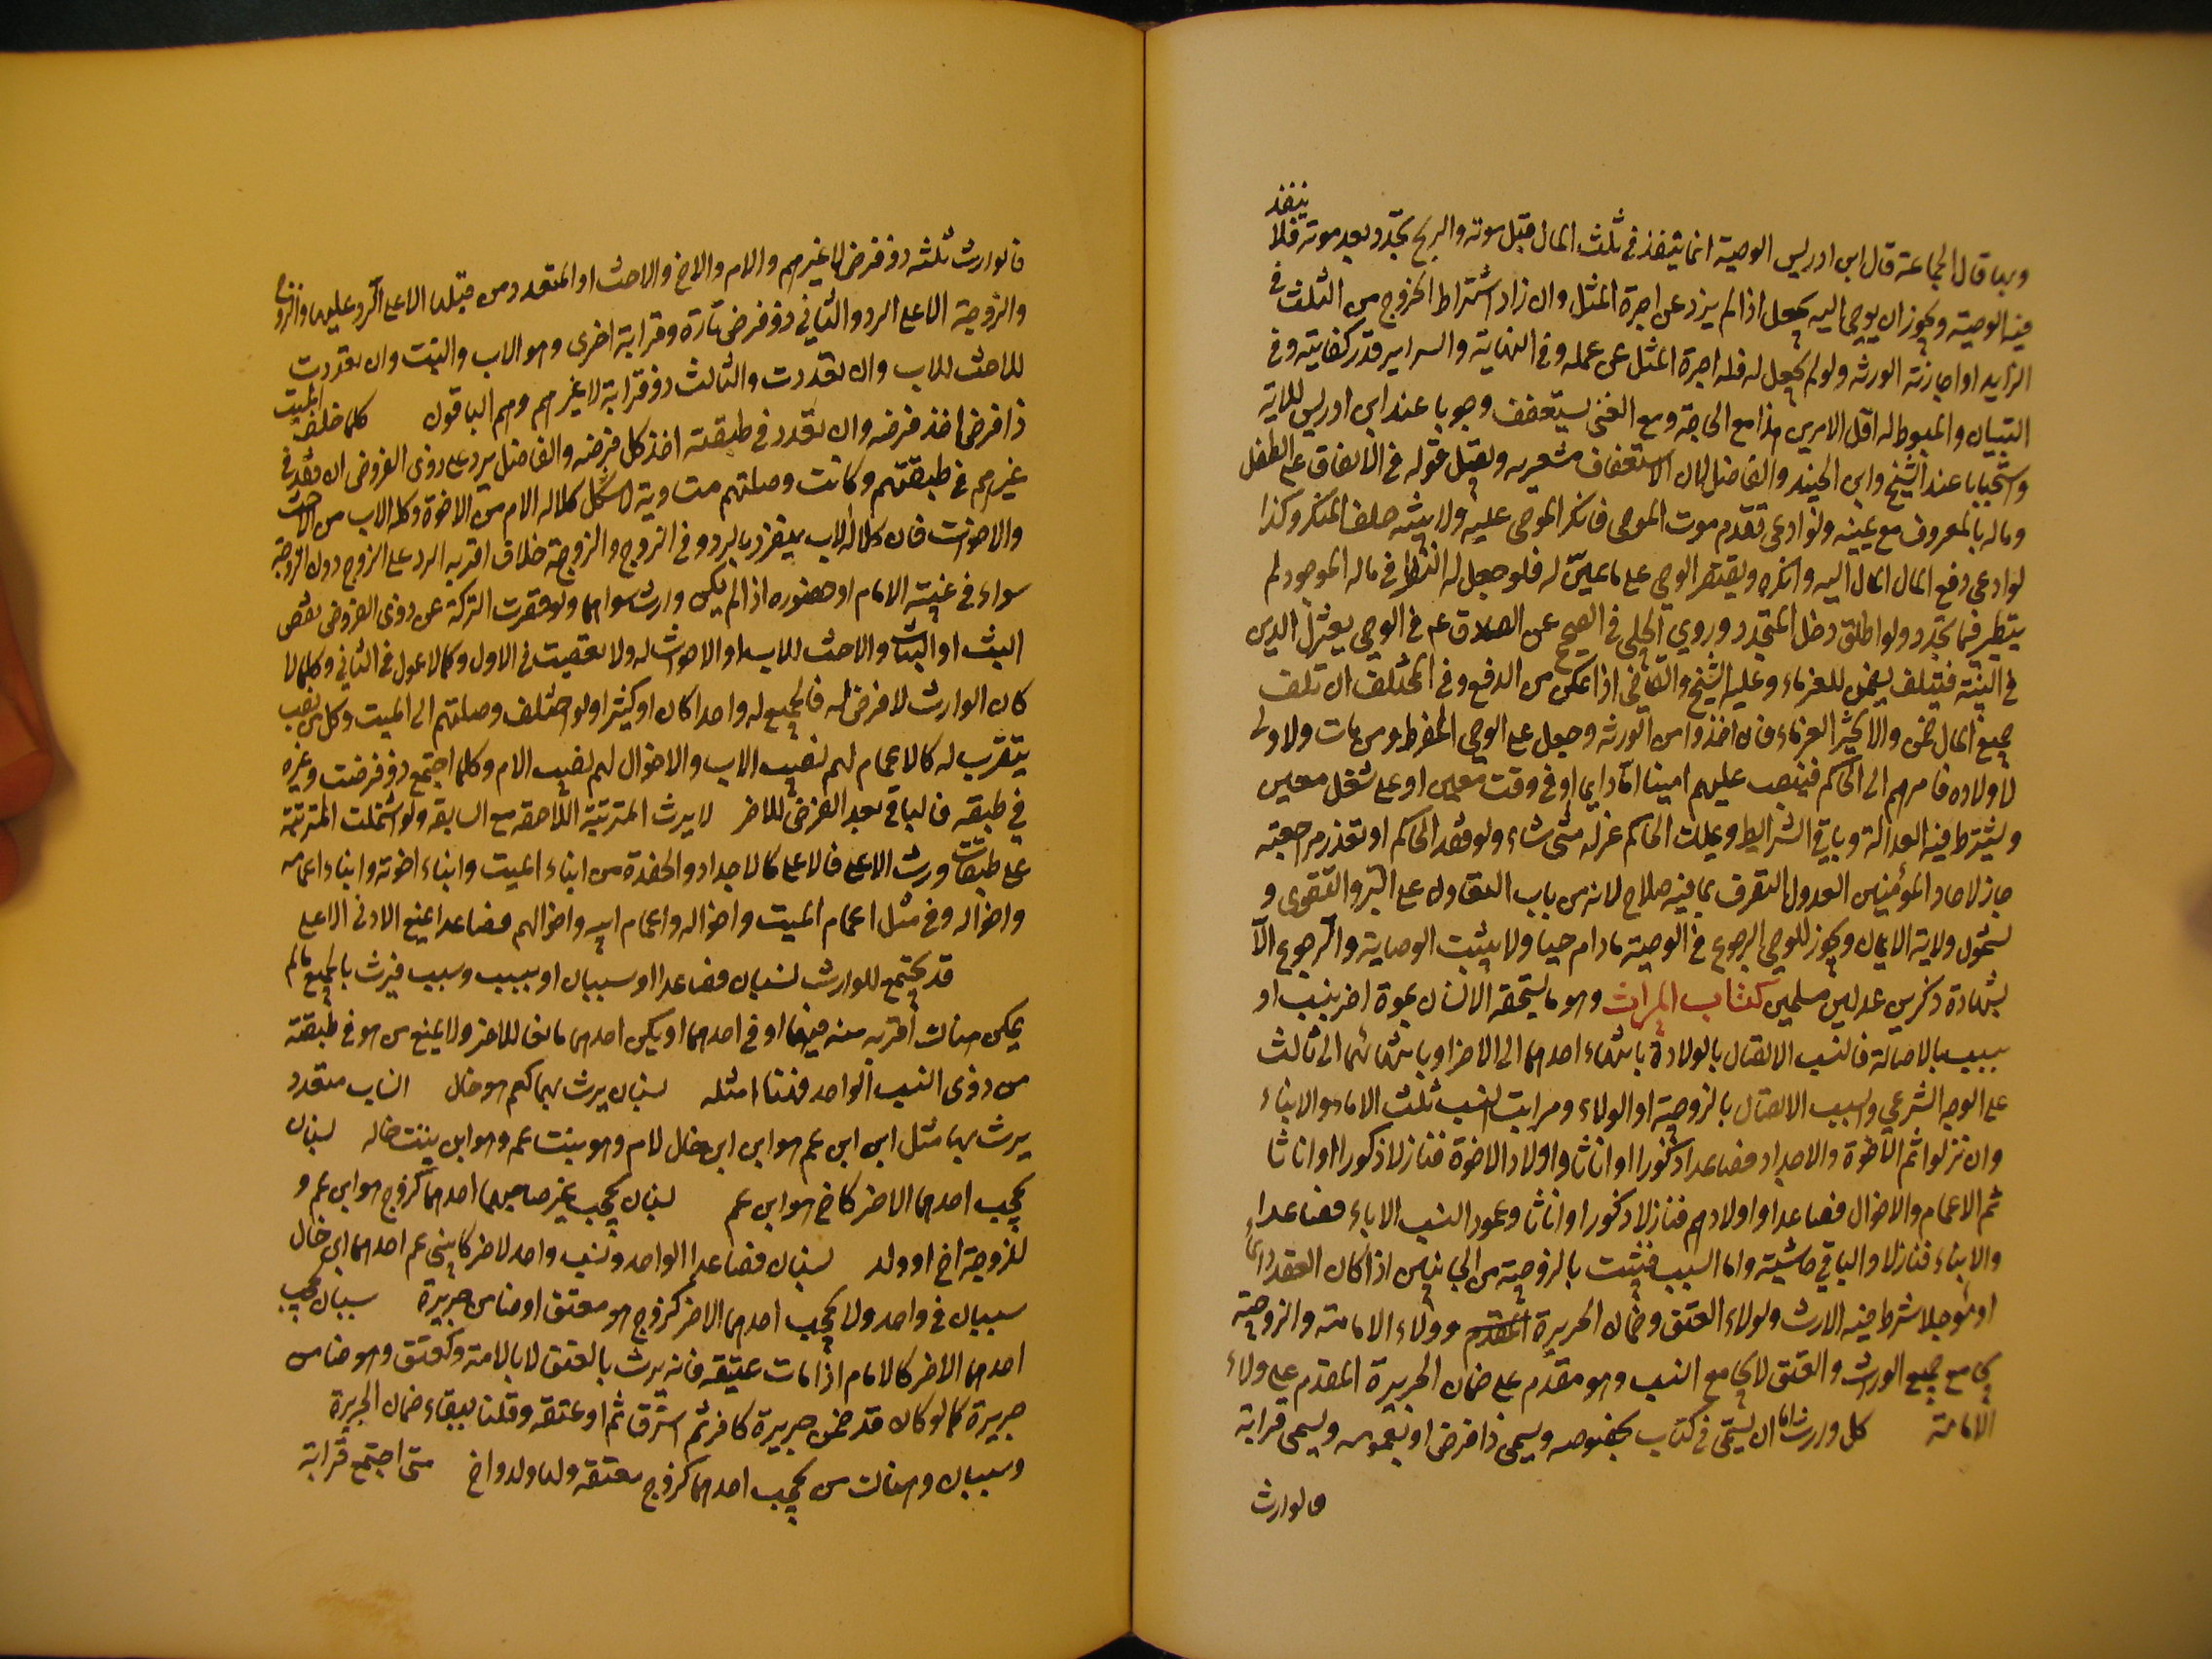 وبها قال الجماعة قال ابن ادريس الوصية انما ينفذ في ثلث المال قبل موته والربح تجدد بعد موته فلا ينفذ
فيه الوصية ويجوز ان يوصي اليه بجعل اذا لم يزد عن اجرة المثل وان زاد اشتراط الخروج من الثلث في
الزايد او اجازته الورثه ولو لم يجعل له فله اجرة المثل عن عمله وفي النهاية والسراير قدر كفايته وفي
التبيان والمبسوط له اقل الامرين هذا مع الحاجة ومع الغنى يستعفف وجوبا عند ابن ادريس للاية
واستحبابا عند الشيخ وابن الجنيد والفاضل لان الاستعفاف مشعر به ويقبل قوله في الانفاق على الطفل
وماله بالمعروف مع يمينه ولو ادعى تقدم موت الموصي فانكر الموصى عليه ولا بينة حلف المنكر وكذا
لو ادعى دفع المال المال اليه وانكره ويقتصر الوصي على ما عين له فلو جعل له النظر في ماله الموجود لم
ينظر فيما تجدد ولو اطلق دخل المتجدد وروي الحلبي في الصحيح عن الصادق عم في الوصي يعزل الدين
في البيته فيتلف يضمن للغرماء وعليه الشيخ والقاضي اذا تمكن من الدفع وفي المختلف ان تلف
جميع المال ضمن والا تخير الغرماء فان اخذوا من الورثه وجعل على الوصي المفرط ومن مات ولا ولي
لاولاده فامرهم الى الحاكم فينصب عليهم امينا اما دايما او في وقت معين او على شغل معين
ويشترط فيه العدالة وباقي الشرايط ويملك الحاكم عزله متى شاء ولو فقد الحاكم او تعذر مراجعته
جاز لاحاد المؤمنين العدول التصرف بما فيه صلاح لانه من باب التعاون على البر والتقوى و
لشمول ولاية الايمان ويجوز للوصي الرجوع في الوصية مادام حيا ولا يثبت الوصاية والرجوع الا
بشهادة ذكرين عدلين مسلمين كتاب الميراث وهو ما يستحقه الانسان بموت اخر بنسب او
بسبب بالاصالة فالنسب الاتصال بالولادة بانتهاء احدهما الى الاخر او بانتهائهما الى ثالث
على الوجه الشرعي والسبب الاتصال بالزوجية او الولاء ومراتب النسب ثلث الاباء والابناء
وان نزلوا ثم الاخوة والاجداد فصاعدا ذكورا او اناثا واولاد الاخوة فنازلا ذكورا او اناثا
ثم الاعمام والاخوال فصاعدا واولادهم فنازلا ذكورا او اناثا وعمود النسب الاباء فصاعدا
والابناء فنازلا والباقي حاشيته واما السبب فيثبت بالزوجية من الجانبين اذا كان العقد دائما
او مؤجلا شرط فيه الارث ولولاء العتق وضمان الجريرة المقدم وولاء الامامة والزوجية
يجامع جميع الورثه والعتق لا يجامع النسب وهو مقدم على ضمان الجريرة المقدم على ولاء
الامامة كل وارث اما ان يسمى في كتاب بخصوصه ويسمى ذا فرض او بعمومه ويسمى قرابة
فالوارث
فالوارث ثلثه ذو فرض لا غير هم والام والاخ والاخت او المتعدد من قبلها الا على الرد عليها والزوج
والزوجة الا على الرد والثاني ذو فرض تارة وقرابة اخرى وهو الاب والبنت وان تعددت
للاخت للاب وان تعددت والثالث ذو قرابة لا غير هم وهم الباقون كلما خلف الميت
ذا فرض اخذ فرضه وان تعدد في طبقته اخذ كل فرضه والفاضل يرد على ذوى الفروض ان فقد في
غيرهم في طبقتهم وكانت وصلتهم متساوية كلاله الام من الاخوة وكلاله الاب من الاخت
والاخوات فان كلاله الاب ينفرد بالرد وفي الزوج والزوجة خلاف اقربه الرد على الزوج دون الزوجة
سواء في غيبة الامام او حضوره اذا لم يكن وارث سواهما ولو قصرت التركة عن ذوى الفروض نقص
البنت او البنات والاخت للاب او الاخوات له ولا تعصيب في الاول وكما لا عول في الثاني وكلما لا
كان الوارث لا فرض له فالجميع له واحدا كان او كثيرا ولو اختلف وصلتهم الى الميت وكل من نصيب
يتقرب له كالاعمام لهم نصيب الاب والاخوال لهم نصيب الام وكلما اجتمع ذو فرضت وغيره
في طبقه فالباقي بعد الفرض للاخر لا يرث المترتبة اللاحقه مع السابقه ولو اشتملت المترتبة
على طبقات ورث الاعلى فالاعلى كالاجداد والحفدة من ابناء الميت وابناء اخوته وابناء اعمامه
واخواله وفي مثل اعمام الميت واخواله واعمام ابيه واخوالهم فصاعدا يمنع الادنى الاعلى
قد يجتمع للوارث نسبان فصاعدا او سببان او نسب وسبب فيرث بالجميع مالم
يكن هناك اقرب منه فيهما او في احدهما او يكن احدهما مانعا للاخر ولا يمنع من هو في طبقته
من ذوى النسب الواحد فهنا امثله نسبان يرث بهما كعم هو خال انساب متعدد
يرث بها مثل ابن ابن عم هو ابن ابن خال لام وهو بنت عم وهو ابن بنت خاله نسبان
يحجب احدهما الاخر كاخ هو ابن عم نسبان يحجب غير صاحبهما احدهما كزوج هو ابن عم و
للزوجة اخ او ولد نسبان فصاعدا الواحد ونسب واحد لاخر كابني عم احدهما ابن خال
سببان في واحد ولا يحجب احدهما الاخر كزوج هو معتق او ضامن جريرة سببان يحجب
احدهما الاخر كالامام اذا مات عتيقه فانه يرث بالعتق لا بالامامة وكمعتق وهو ضامن
جريرة كما لو كان قد ضمن جريرة كافر ثم استرق ثم اوعتقه وقلنا ببقاء ضمان الجريرة
وسببان وهناك من يحجب احدهما كزوج معتقه ولها ولد واخ متى اجتمع قرابة